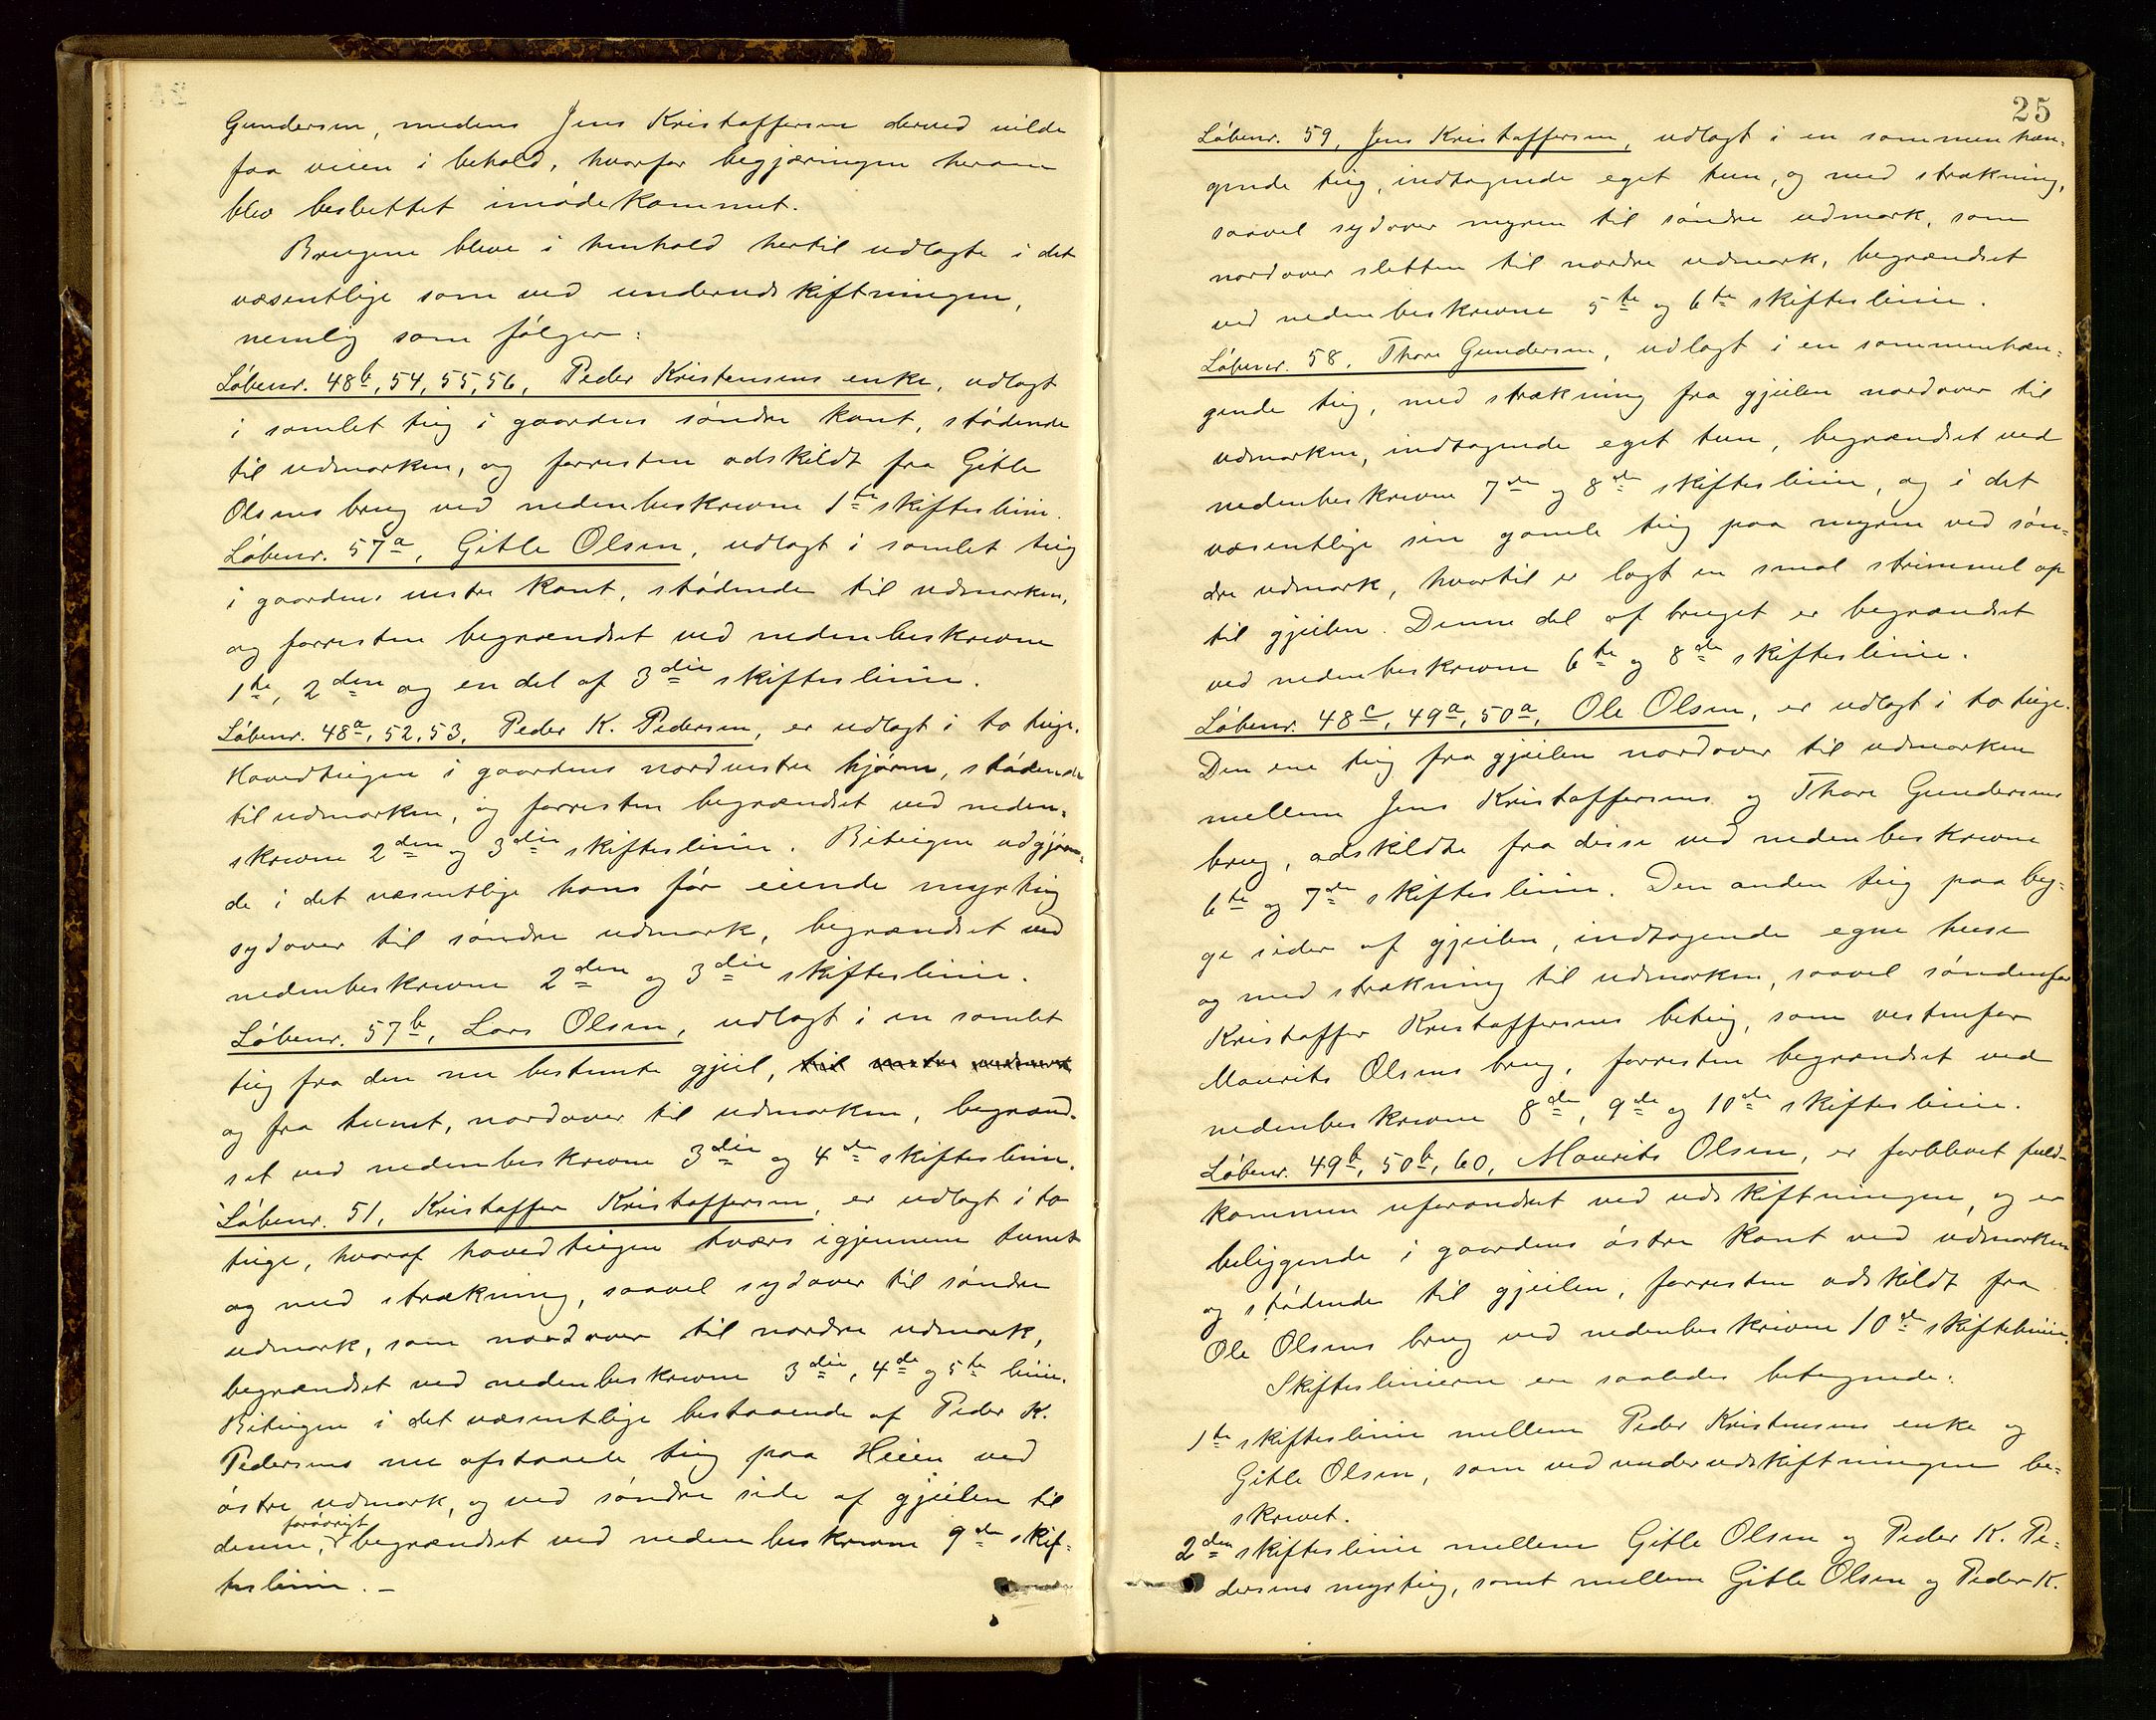 Gundersen, medens Jens Kristoffersen derved vilde
faa veien i behold, hvorfor begjæringen herom
blev besluttet imødekommet.
Brugene bleve i henhold hertil udlagte i det
væsentlige som ved underudskiftningen,
nemlig som følger:
Løbenr. 48b, 54, 55, 56, Peder Kristensens enke, udlagt
i samlet teig i gaardens søndre kant, stødende
til udmarken, og forresten adskildt fra Gitle
Olsens brug ved nedenbeskrevne 1te skifteslinie.
Løbenr. 57a, Gitle Olsen, udlagt i samlet teig
i gaardens vestre kant, stødende til udmarken,
og forresten begrændset ved nedenbeskrevne
1te, 2den og en del af 3die skifteslinie.
Løbenr. 48a, 52, 53, Peder K. Pedersen, er udlagt i to teige.
Hovedteigen i gaardens nordvestre hjørne, stødende
til udmarken, og forresten begrændset ved neden-
skrevne 2den og 3die skifteslinie. Biteigen udgjøren-
de i det væsentlige hans før eiende myrteig
sydover til søndre udmark, begrændset ved
nedenbeskrevne 2den og 3die skifteslinie.
Løbenr. 57b, Lars Olsen, udlagt i en samlet
teig fra den nu bestemte gjeil, til nordre udmark
og fra tunet, nordover til udmarken, begrænd-
set ved nedenbeskrevne 3die og 4de skifteslinie.
Løbenr. 51, Kristoffer Kristoffersen, er udlagt i to
teige, hvoraf hovedteigen tværs igjennem tunet
og med strækning, saavel sydover til søndre
udmark, som nordover til nordre udmark,
begrændset ved nedenbeskrevne 3die, 4de og 5te linie.
Biteigen i det væsentlige bestaaende af Peder K.
Pedersens nu afstaaede teig paa Heien ved
østre udmark, og ved søndre side af gjeilen til
denne, forøvrigt begrændset ved nedenbeskrevne 9de skif-
teslinie. –
25
Løbenr. 59, Jens Kristoffersen, udlagt i en sammenhæn-
gende teig, indtagende eget tun, og med strækning,
saavel sydover myren til søndre udmark, som
nordover sletten til nordre udmark, begrændset
ved nedenbeskrevne 5te og 6te skifteslinie.
Løbenr. 58, Thore Gundersen, udlagt i en sammenhæn-
gende teig, med strækning fra gjeilen nordover til
udmarken, indtagende eget tun, begrændset ved
nedenbeskrevne 7de og 8de skifteslinie, og i det
væsentlige sin gamle teig paa myren ved søn-
dre udmark, hvortil er lagt en smal strimmel op
til gjeilen. Denne del af bruget er begrændset
ved nedenbeskrevne 6te og 8de skifteslinie.
Løbenr. 48c, 49a, 50a, Ole Olsen, er udlagt i to teige.
Den ene teig fra gjeilen nordover til udmarken
mellem Jens Kristoffersens og Thore Gundersens
brug, adskildte fra disse ved nedenbeskrevne
6te og 7de skifteslinie. Den anden teig paa beg-
ge sider af gjeilen, indtagende egne huse
og med strækning til udmarken, saavel søndenfor
Kristoffer Kristoffersens biteig, som vestenfor
Maurits Olsens brug, forresten begrændset ved
nedenbeskrevne 8de, 9de og 10de skifteslinie.
Løbenr. 49b, 50b, 60, Maurits Olsen, er forblevet fuld-
kommen uforandret ved udskiftningen, og er
beliggende i gaardens østre kant ved udmarken
og stødende til gjeilen, forresten adskildt fra
Ole Olsens brug ved nedenbeskrevne 10de skifteslinie.
Skifteslinierne ere saaledes betegnede:
1te skifteslinie mellem Peder Kristensens enke og
Gitle Olsen, som ved underudskiftningen be-
skrevet.
2den skifteslinie mellem Gitle Olsen og Peder K. Pe-
dersens myrteig, samt mellem Gitle Olsen og Peder K.